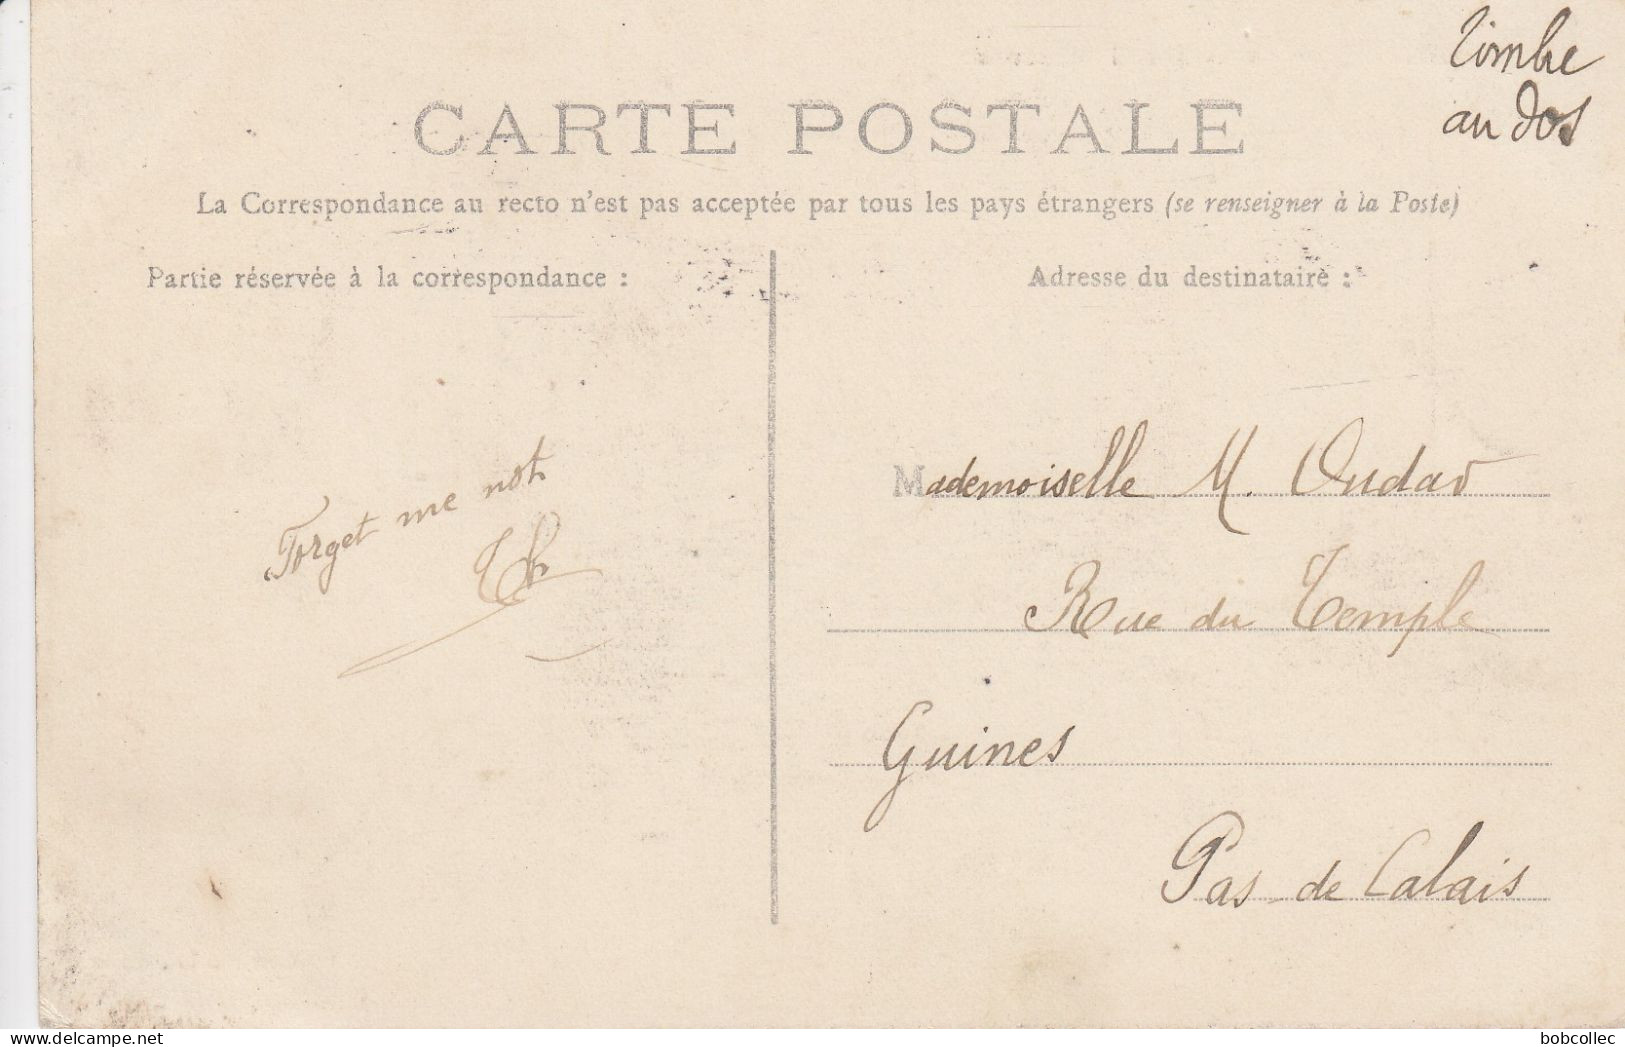 Timbre
au dos
CARTE POSTALE
La Correspondance au recto n'est pas acceptée par tous les pays étrangers (se renseigner à la Poste)
Partie réservée à la correspondance :
Forget me not
Adresse du destinataire :
Mademoiselle M. Oudar
Rue du Temple
Guines
Pas-de Calais
bobcollec